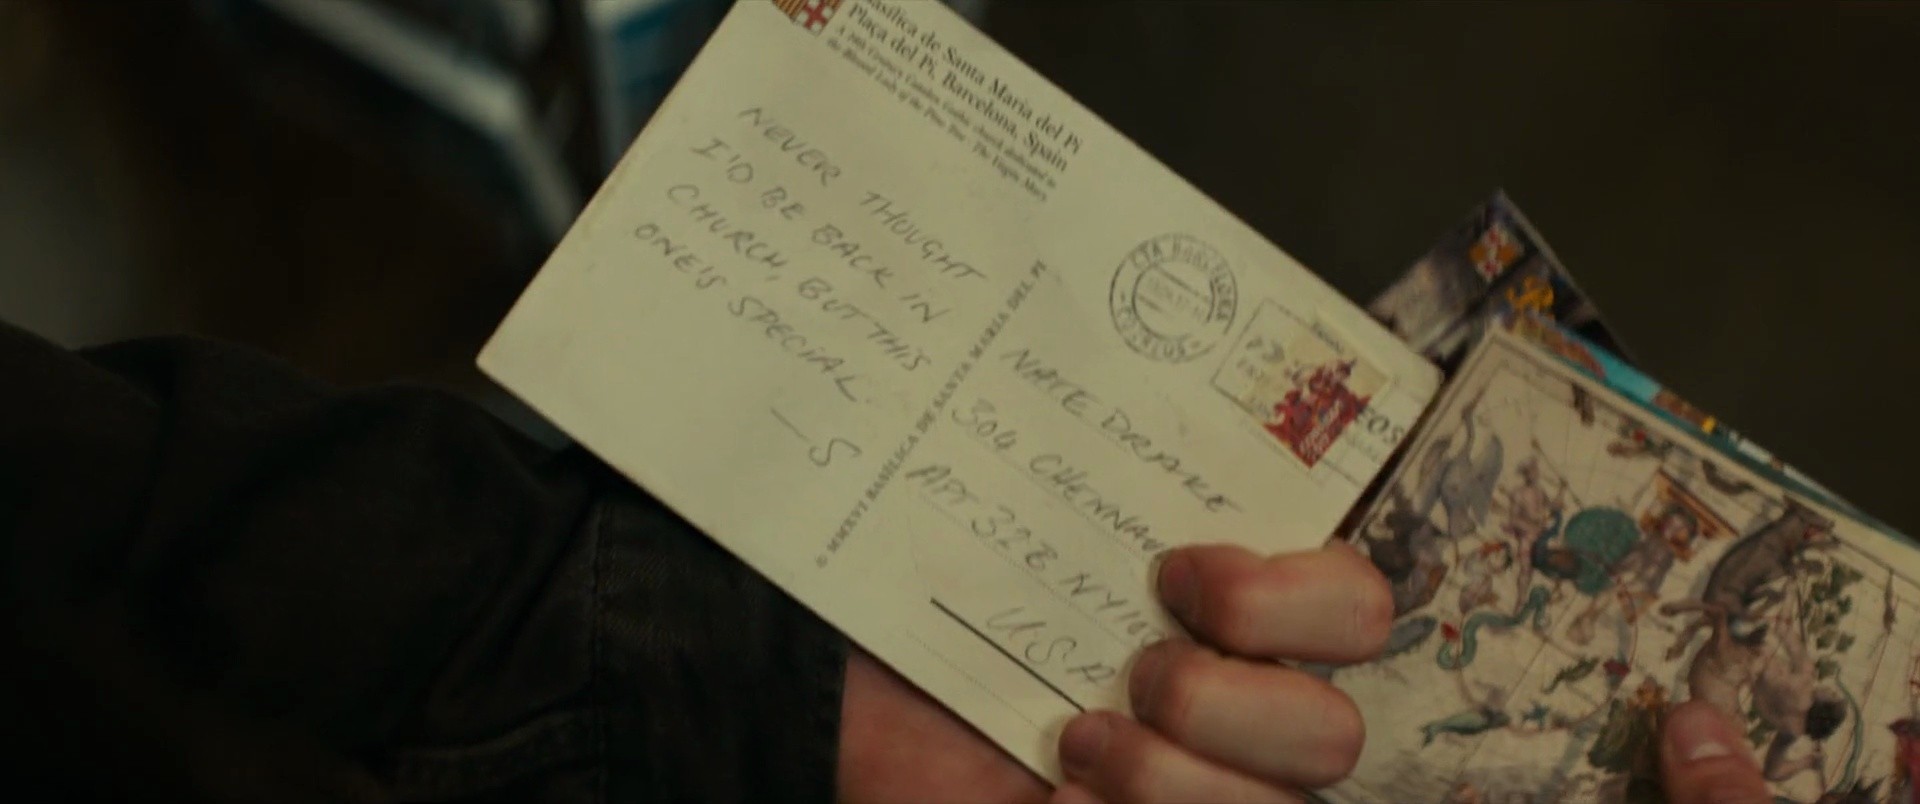 Basílica de Santa Maria del Pi
Plaça del Pi, Barcelona, Spain
A 14th Century Catalan Gothic church dedicated to
the Blessed Lady of the Pine Tree - The Virgin Mary
NEVER THOUGHT
I'D BE BACK IN
CHURCH, BUT THIS
ONE'S SPECIAL
—S
© MMXVI BASÍLICA DE SANTA MARIA DEL PI
CTA BARCELONA
CORREUS
NATE DRAKE
304 CHENNAU
APT 32B NY100
USA